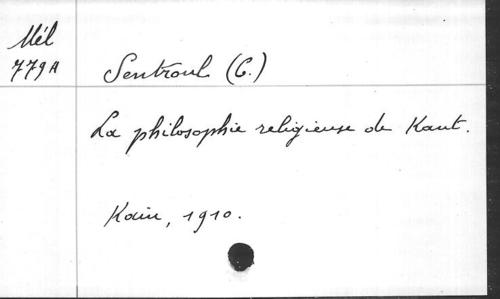 Mél
779A
Sentroul (C.)
La philosophie religieuse de Kant.
Kain, 1910.